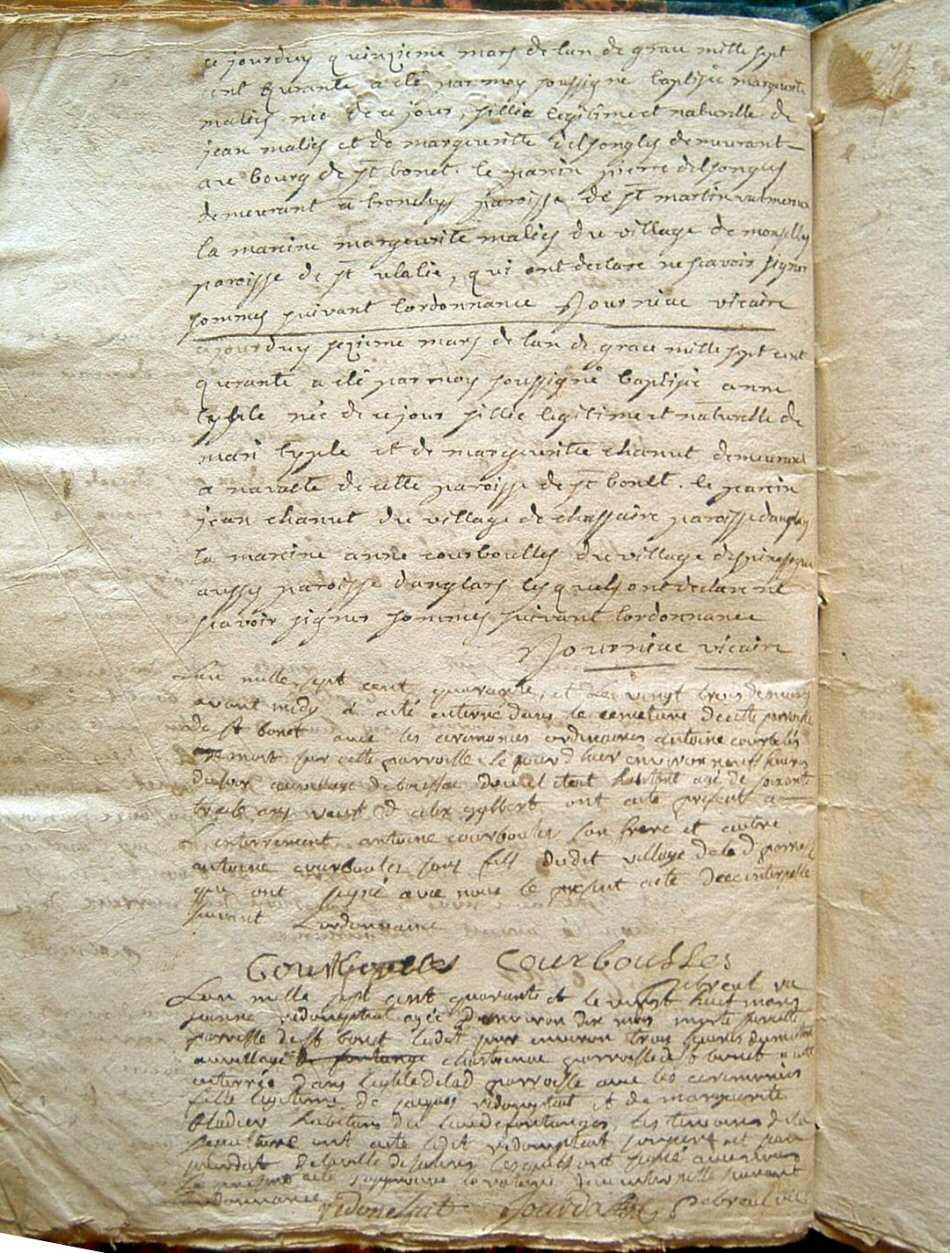 ce jourduy quinzieme mars de lan de grace mille sept
cent qurante a eté par moy soussigne baptisée marguerite
malies née de ce jour, fillie legitime et naturelle de
jean malies et de marguerite delsongles demeurant
au bourg de st bonet. le parein pierre delsongles
demeurant a tronchys paroisse de st martin valmeroux
la mareine marguerite malies du village de
paroisse de st ulalie, qui ont declare ne scavoir signer
sommes suivant lordonnance Journiac vicaire
cejourduy sezieme mars de lan de grace mille sept cent
qurante a eté par moy soussigné baptisée anne
née de ce jour fillie legitime et naturelle de
et de marguerite chanut demeurant
a navaste de cette paroisse de st bonet. le parein
jean chanut du village de chassaire paroisse danglars
la mareine anne courboulles du village
aussy paroisse danglars lesquels ont declare ne
scavoir signer sommes suivant lordonnance
Journiac vicaire
Lan mille sept cent quarante, et le vingt trois de mars
avant midy a eté enterré dans le cemetiere de cette parroisse
de st bonet avec les ceremonies ordinaires antoine courbolés
mort sur cette parroisse le jour d hier environ neuf heures
du soir au village de boussac douel etoit habitant agé de soixante
treise ans veuf d ont eté present a
lenterrement antoine courboules son frere et autre
antoine courboules sons fils dudit village de la d parroisse
qui ont signé avec nous le present acte de ce interpellé
suivant Lordonnance
Courboulles Courboulles
Lan mille sept cent quarante et le vingt huit mars
jeanne agée denviron dix mois morte sur cette
parroisse de st bonet ledit jour environ trois heures du matin
au village parroisse de st bonet a eté
enterrée dans leglise de lad parroisse avec les ceremonies
fille legitime de jacques et de marguerite
habitans du lieu de fontanges, les temoins de la
sepulture ont eté ledit
de la ville de salers lesquels ont signé avec nous
le present acte interpellé suivant
lordonnance